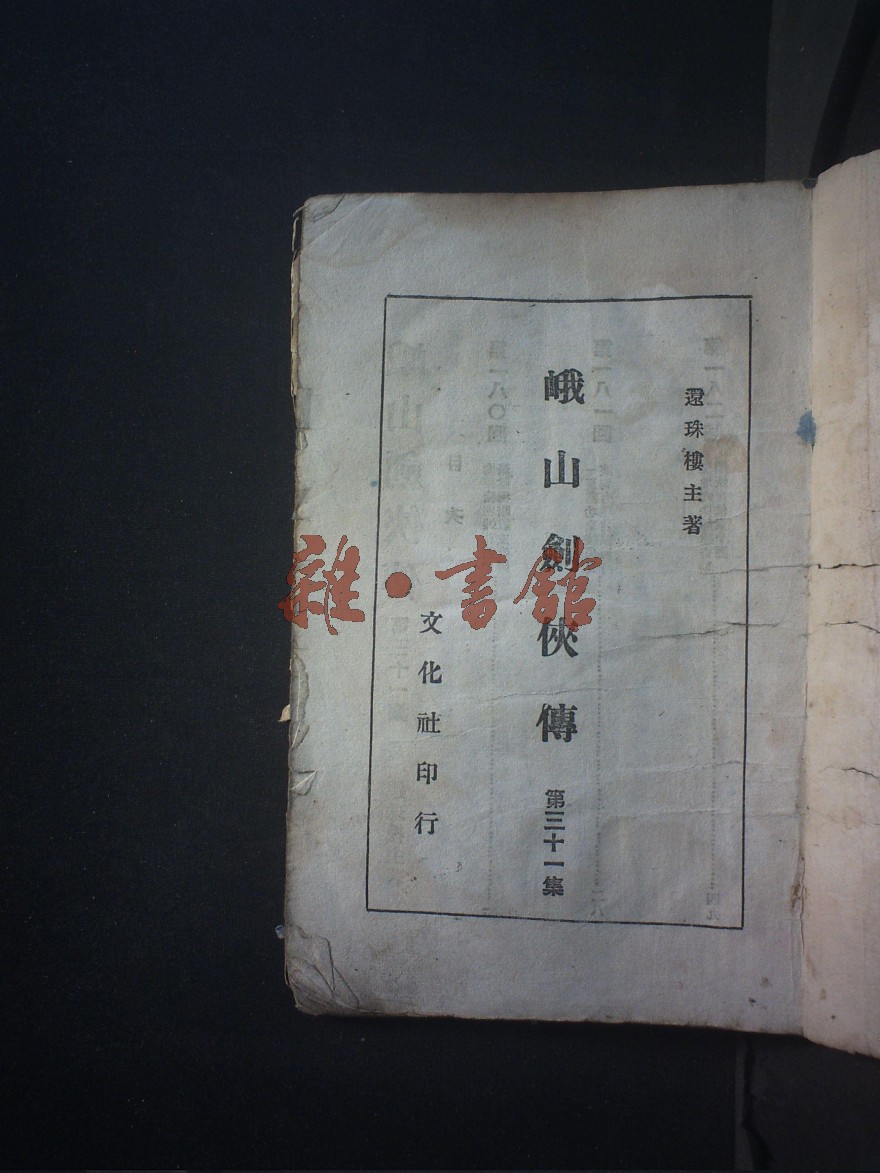 還珠樓主著
峨山劍俠傳 第三十一集
文化社印行
雜·書館